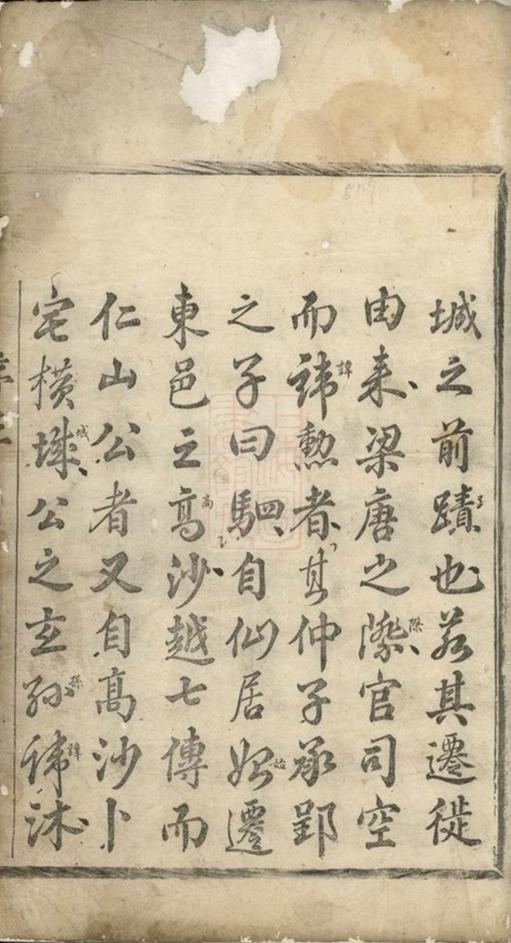 城之前蹟也若其遷徙
由来梁唐之際官司空
而諱勲者其仲子承郢
之子曰駟自仙居始遷
東邑之高沙越七傳而
仁山公者又自高沙卜
宅横城公之玄孫諱沐